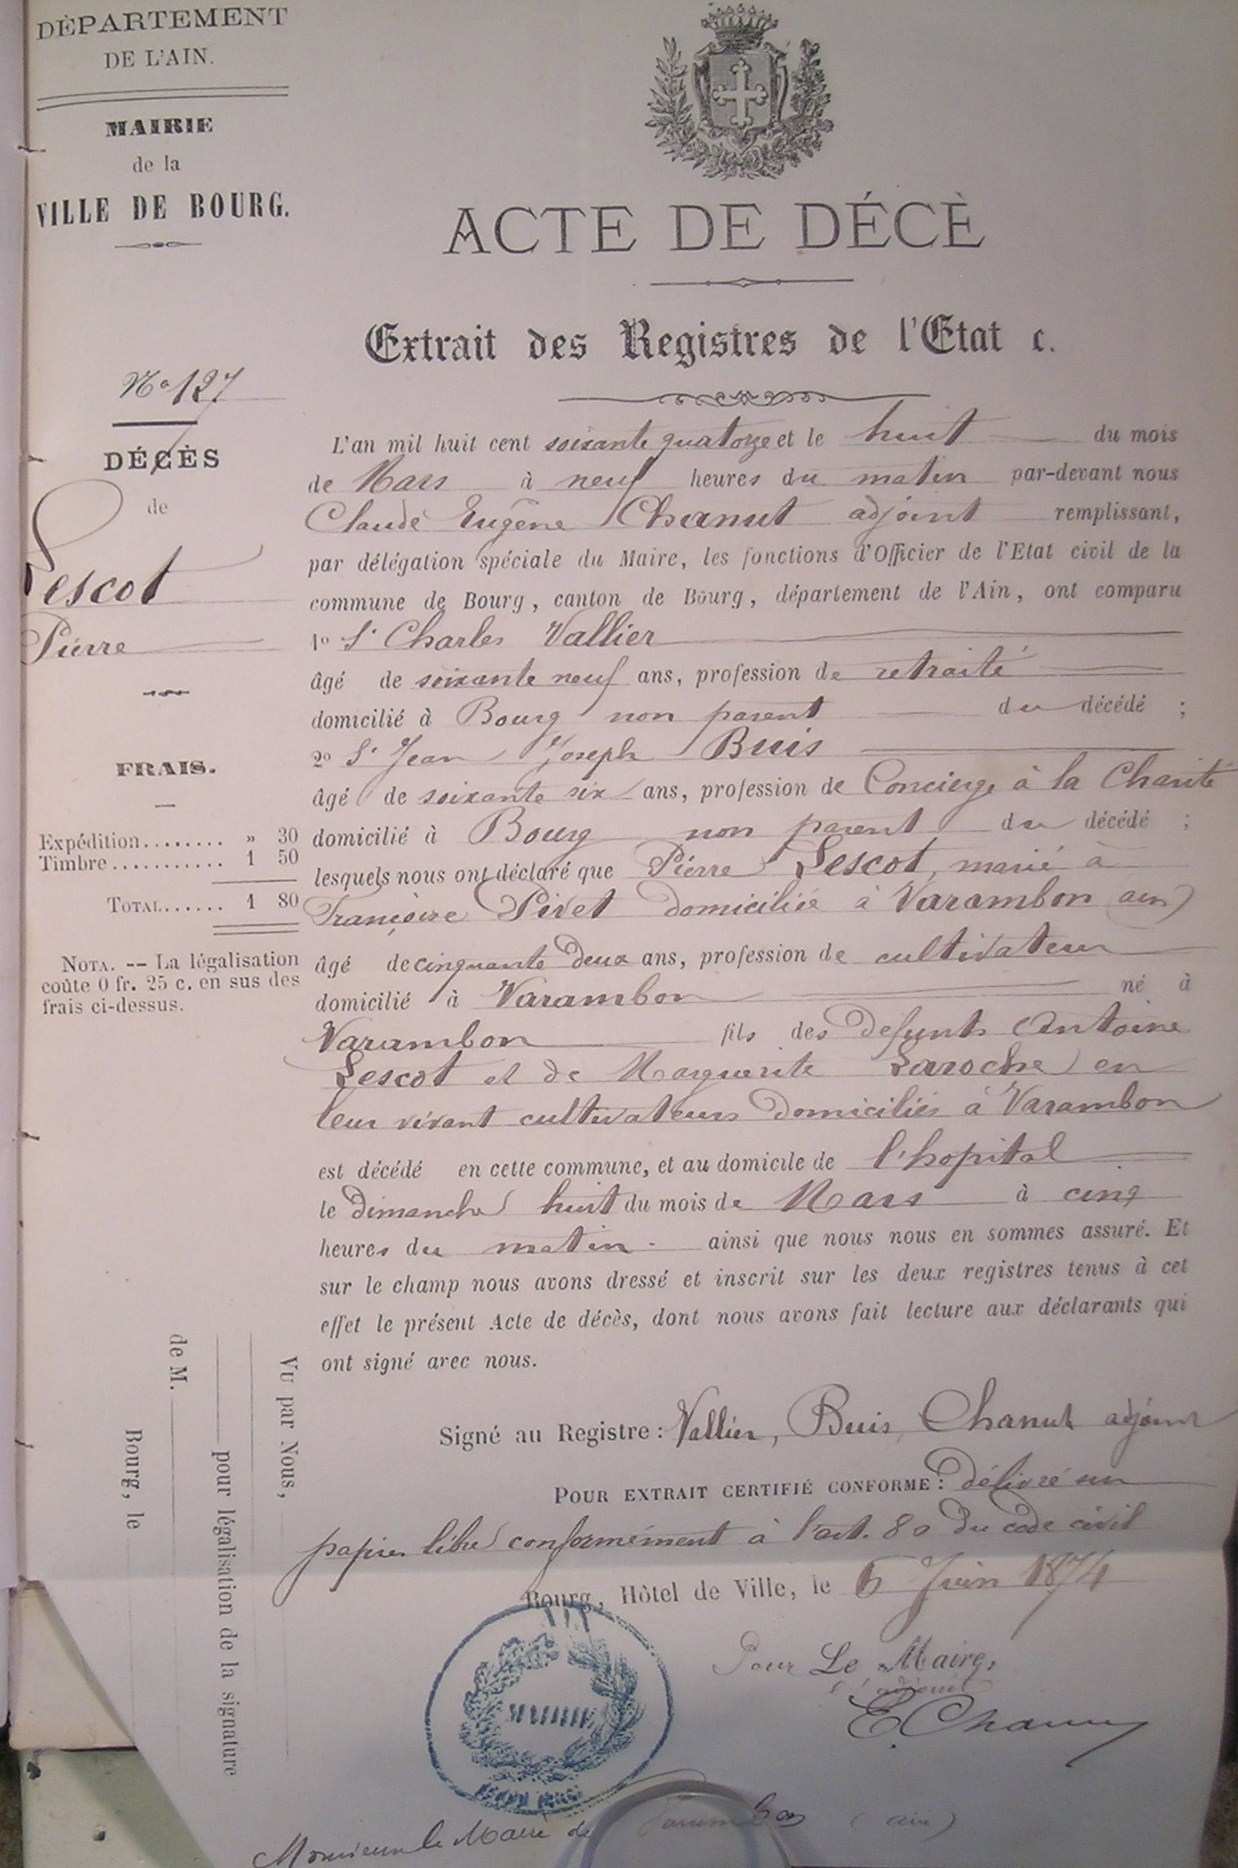 DÉPARTEMENT
DE L'AIN.
MAIRIE
de la
VILLE DE BOURG.
No 127
DÉCÈS
de
Lescot
Pierre
FRAIS.
Expédition........ » 30
Timbre........... 1 50
TOTAL...... 1 80
NOTA. -- La légalisation
coûte 0 fr. 25 c. en sus des
frais ci-dessus.
Vu par Nous,
pour légalisation de la signature
de M.
Bourg, le
ACTE DE DÉCÈ
Extrait des Registres de l'Etat c.
L'an mil huit cent soixante quatorze et le huit du mois
de Mars à neuf heures du matin par-devant nous
Claude Eugène Chanut adjoint remplissant,
par délégation spéciale du Maire, les fonctions d'Officier de l'Etat civil de la
commune de Bourg, canton de Bourg, département de l'Ain, ont comparu
1o Sr Charles Vallier
âgé de soixante neuf ans, profession de retraité
domicilié à Bourg non parent du décédé ;
2o Sr Jean Joseph Buis
âgé de soixante six ans, profession de Concierge à la Charité
domicilié à Bourg non parent du décédé ;
lesquels nous ont déclaré que Pierre Lescot, marié à
Françoise Pivet domiciliée à Varambon (ain)
âgé de cinquante deux ans, profession de cultivateur
domicilié à Varambon né à
Varambon fils des defunts Antoine
Lescot et de Marguerite Laroche en
leur vivant cultivateurs domiciliés à Varambon
est décédé en cette commune, et au domicile de l'hopital
le Dimanche huit du mois de Mars à cinq
heures du matin. ainsi que nous nous en sommes assuré. Et
sur le champ nous avons dressé et inscrit sur les deux registres tenus à cet
effet le présent Acte de décès, dont nous avons fait lecture aux déclarants qui
ont signé avec nous.
Signé au Registre : Vallier, Buis, Chanut adjoint
POUR EXTRAIT CERTIFIÉ CONFORME : délivré sur
papier libre conformément à l'art. 80 du code civil
Bourg, Hôtel de Ville, le 6 Juin 1874
Pour Le Maire,
l'adjoint
E. Chanut
Monsieur le Maire de Varambon (ain)